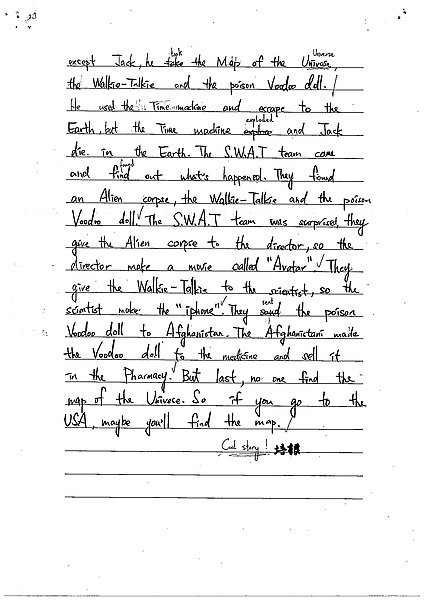 took Universe
except Jack, he take the Map of the Univesn,
the Walkie-Talkie and the poison Voodoo doll. /
He used the Time machine and escape to the
exploded
Earth, but the Time machine explore and Jack
die in the Earth. The S.W.A.T team come
found
and find out what's happened. They found
an Alien corpse, the Walkie-Talkie and the poison
Voodoo doll. The S.W.A.T team was surprised, they
give the Alien corpse to the director, so the
director make a movie called "Avatar". They
give the Walkie-Talkie to the scientist, so the
sent
scientist make the "iphone". They send the poison
Voodoo doll to Afghanistan. The Afghanistani made
the Voodoo doll to the medicine and sell it
in the Pharmacy. But last, no one find the
map of the Univece. So if you go to the
USA, maybe you'll find the map. /
Cool story!